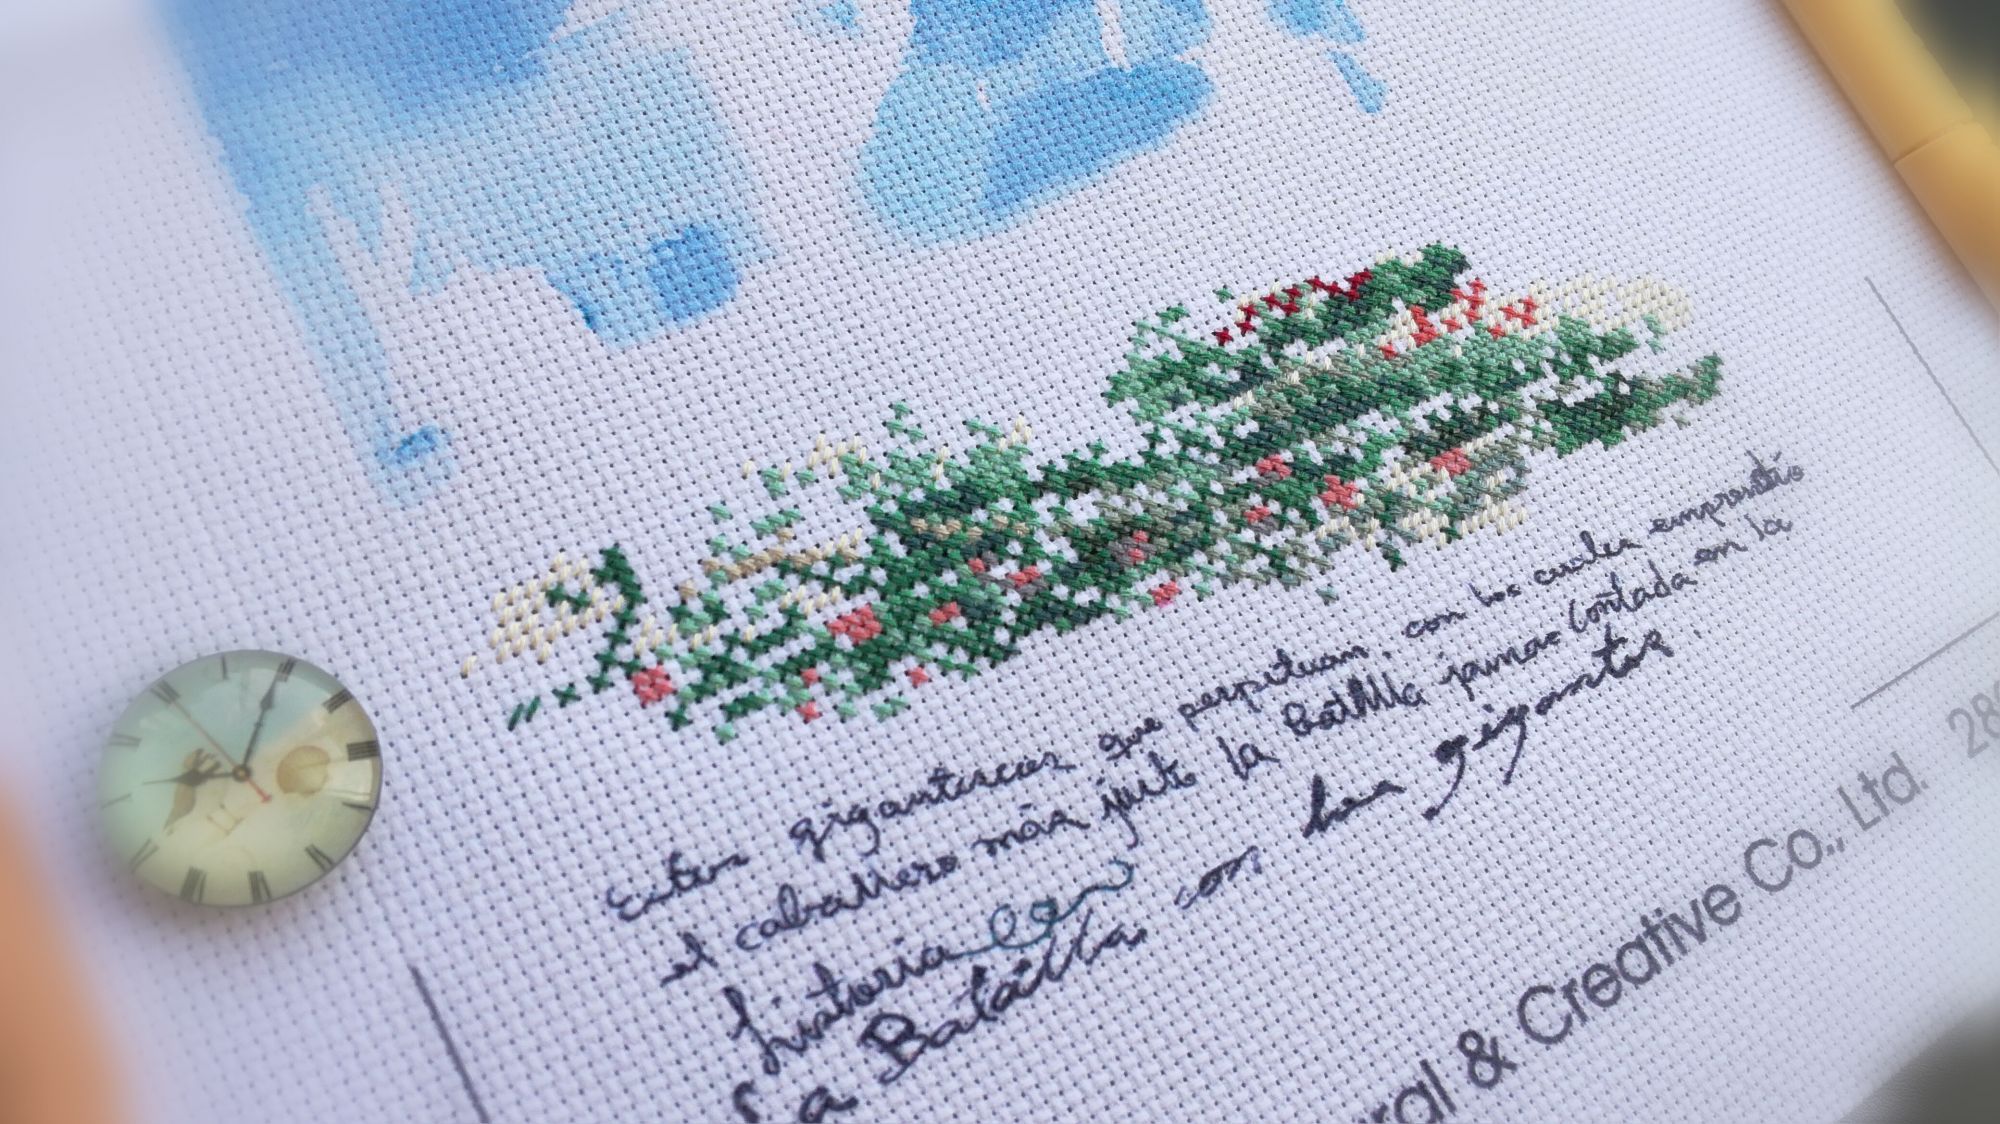 Estas gigantescas que perpetuan, con los cuales emprendió
el caballero más justo la batalla jamas contada en la
historia
La Batalla con los gigantes.
ral & Creative Co., Ltd. 28